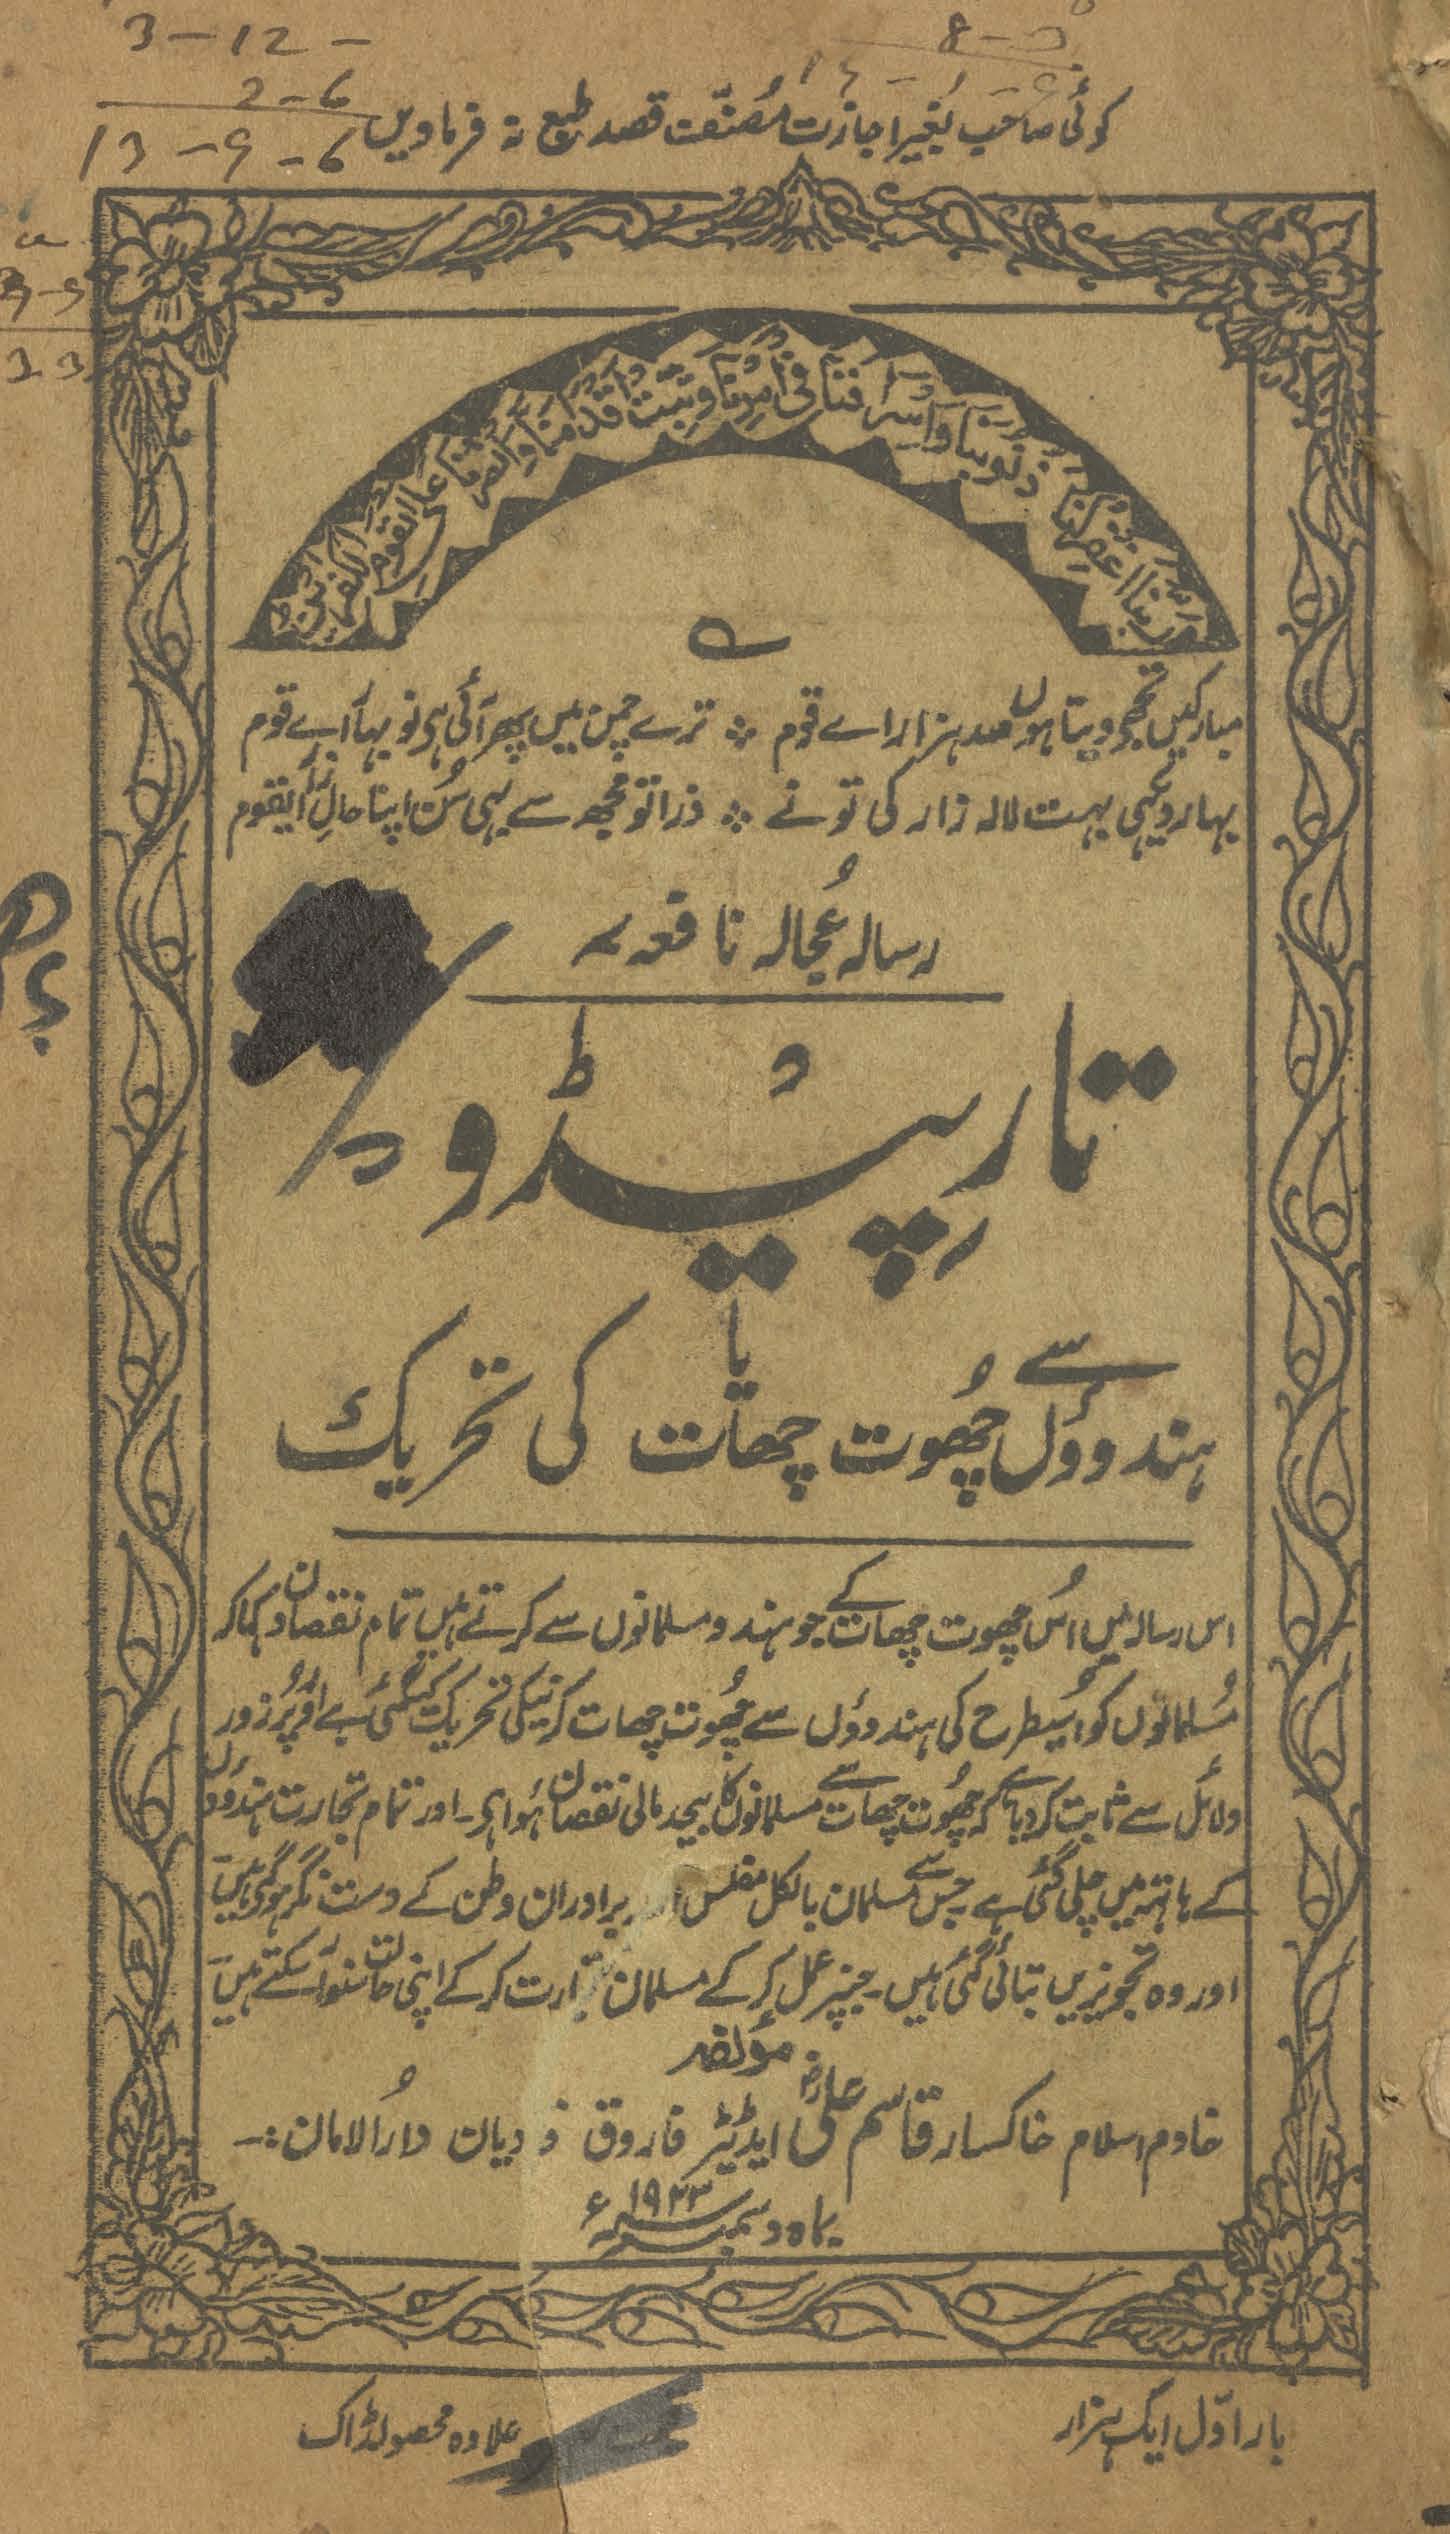 3-12-
2-6
13-9-6
8-5
کوئی صاحب بغیر اجازت مُصنّف قصد طبع نہ فرماویں
رَبَّنَا اغْفِرْ لَنَا ذُنُوبَنَا وَاِسْرَافَنَا فِیْ اَمْرِنَا وَثَبِّتْ اَقْدَامَنَا وَانْصُرْنَا عَلَی الْقَوْمِ الْکٰفِرِیْنَ
مبارکیں تجھے دیتا ہوں صد ہزار اے قوم ∴ ترے چمن میں پھر آئی ہی نو بہار اے قوم
بہار دیکھی بہت لالہ زار کی تو نے ∴ ذرا تو مجھ سے بہی سُن اپنا حالِ زار ایقوم
رسالہ عُجالہ نافعہ
تارپیڈو
یا
ہندوؤں سے چھُوت چھات کی تحریک
اس رسالہ میں اُس چھوت چھات کے جو ہندو مسلمانوں سے کرتے ہیں تمام نقصان دکہا کر
مُسلمانوں کو اُسیطرح کی ہندوؤں سے چھُوت چھات کرنیکی تحریک کیگئی ہے اور پُر زور
دلائل سے ثابت کردیا ہے کہ چھُوت چھات سے مسلمانوں کا بیحد مالی نقصان ہُوا ہی۔ اور تمام تجارت ہندوؤں
کے ہاتہہ میں چلی گئی ہے۔ جس سے مسلمان بالکل مفلس اور برادران وطن کے دست نگر ہوگئی ہیں
اور وہ تجویزیں بتائی گئی ہیں۔ جنپر عمل کرکے مسلمان تجارت کرکے اپنی حالت سنوار سکتے ہیں
مؤلفہ
خادم اسلام خاکسار قاسم علی ایڈیٹر فاروق قادیان دارُالامان:۔
بماہ دسمبر ۱۹۲۳ء
بار اوّل ایک ہزار
علاوہ محصولڈاک